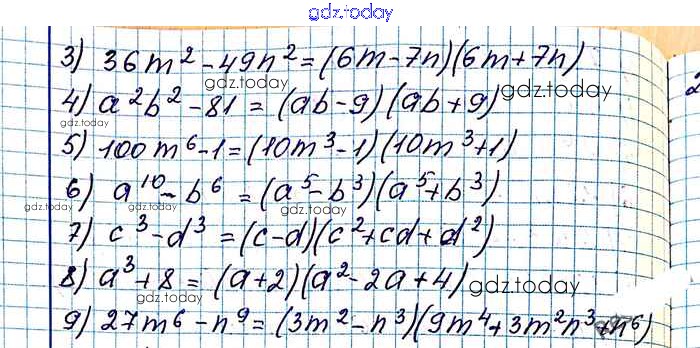 gdz.today
3) 36m² - 49n² = (6m - 7n)(6m + 7n)
gdz.today
4) a²b² - 81 = (ab - 9)(ab + 9) gdz.today
gdz.today
5) 100m⁶ - 1 = (10m³ - 1)(10m³ + 1)
6) a¹⁰ - b⁶ = (a⁵ - b³)(a⁵ + b³)
gdz.today gdz.today
7) c³ - d³ = (c - d)(c² + cd + d²)
8) a³ + 8 = (a + 2)(a² - 2a + 4)
gdz.today gdz.today
9) 27m⁶ - n⁹ = (3m² - n³)(9m⁴ + 3m²n³ + n⁶)